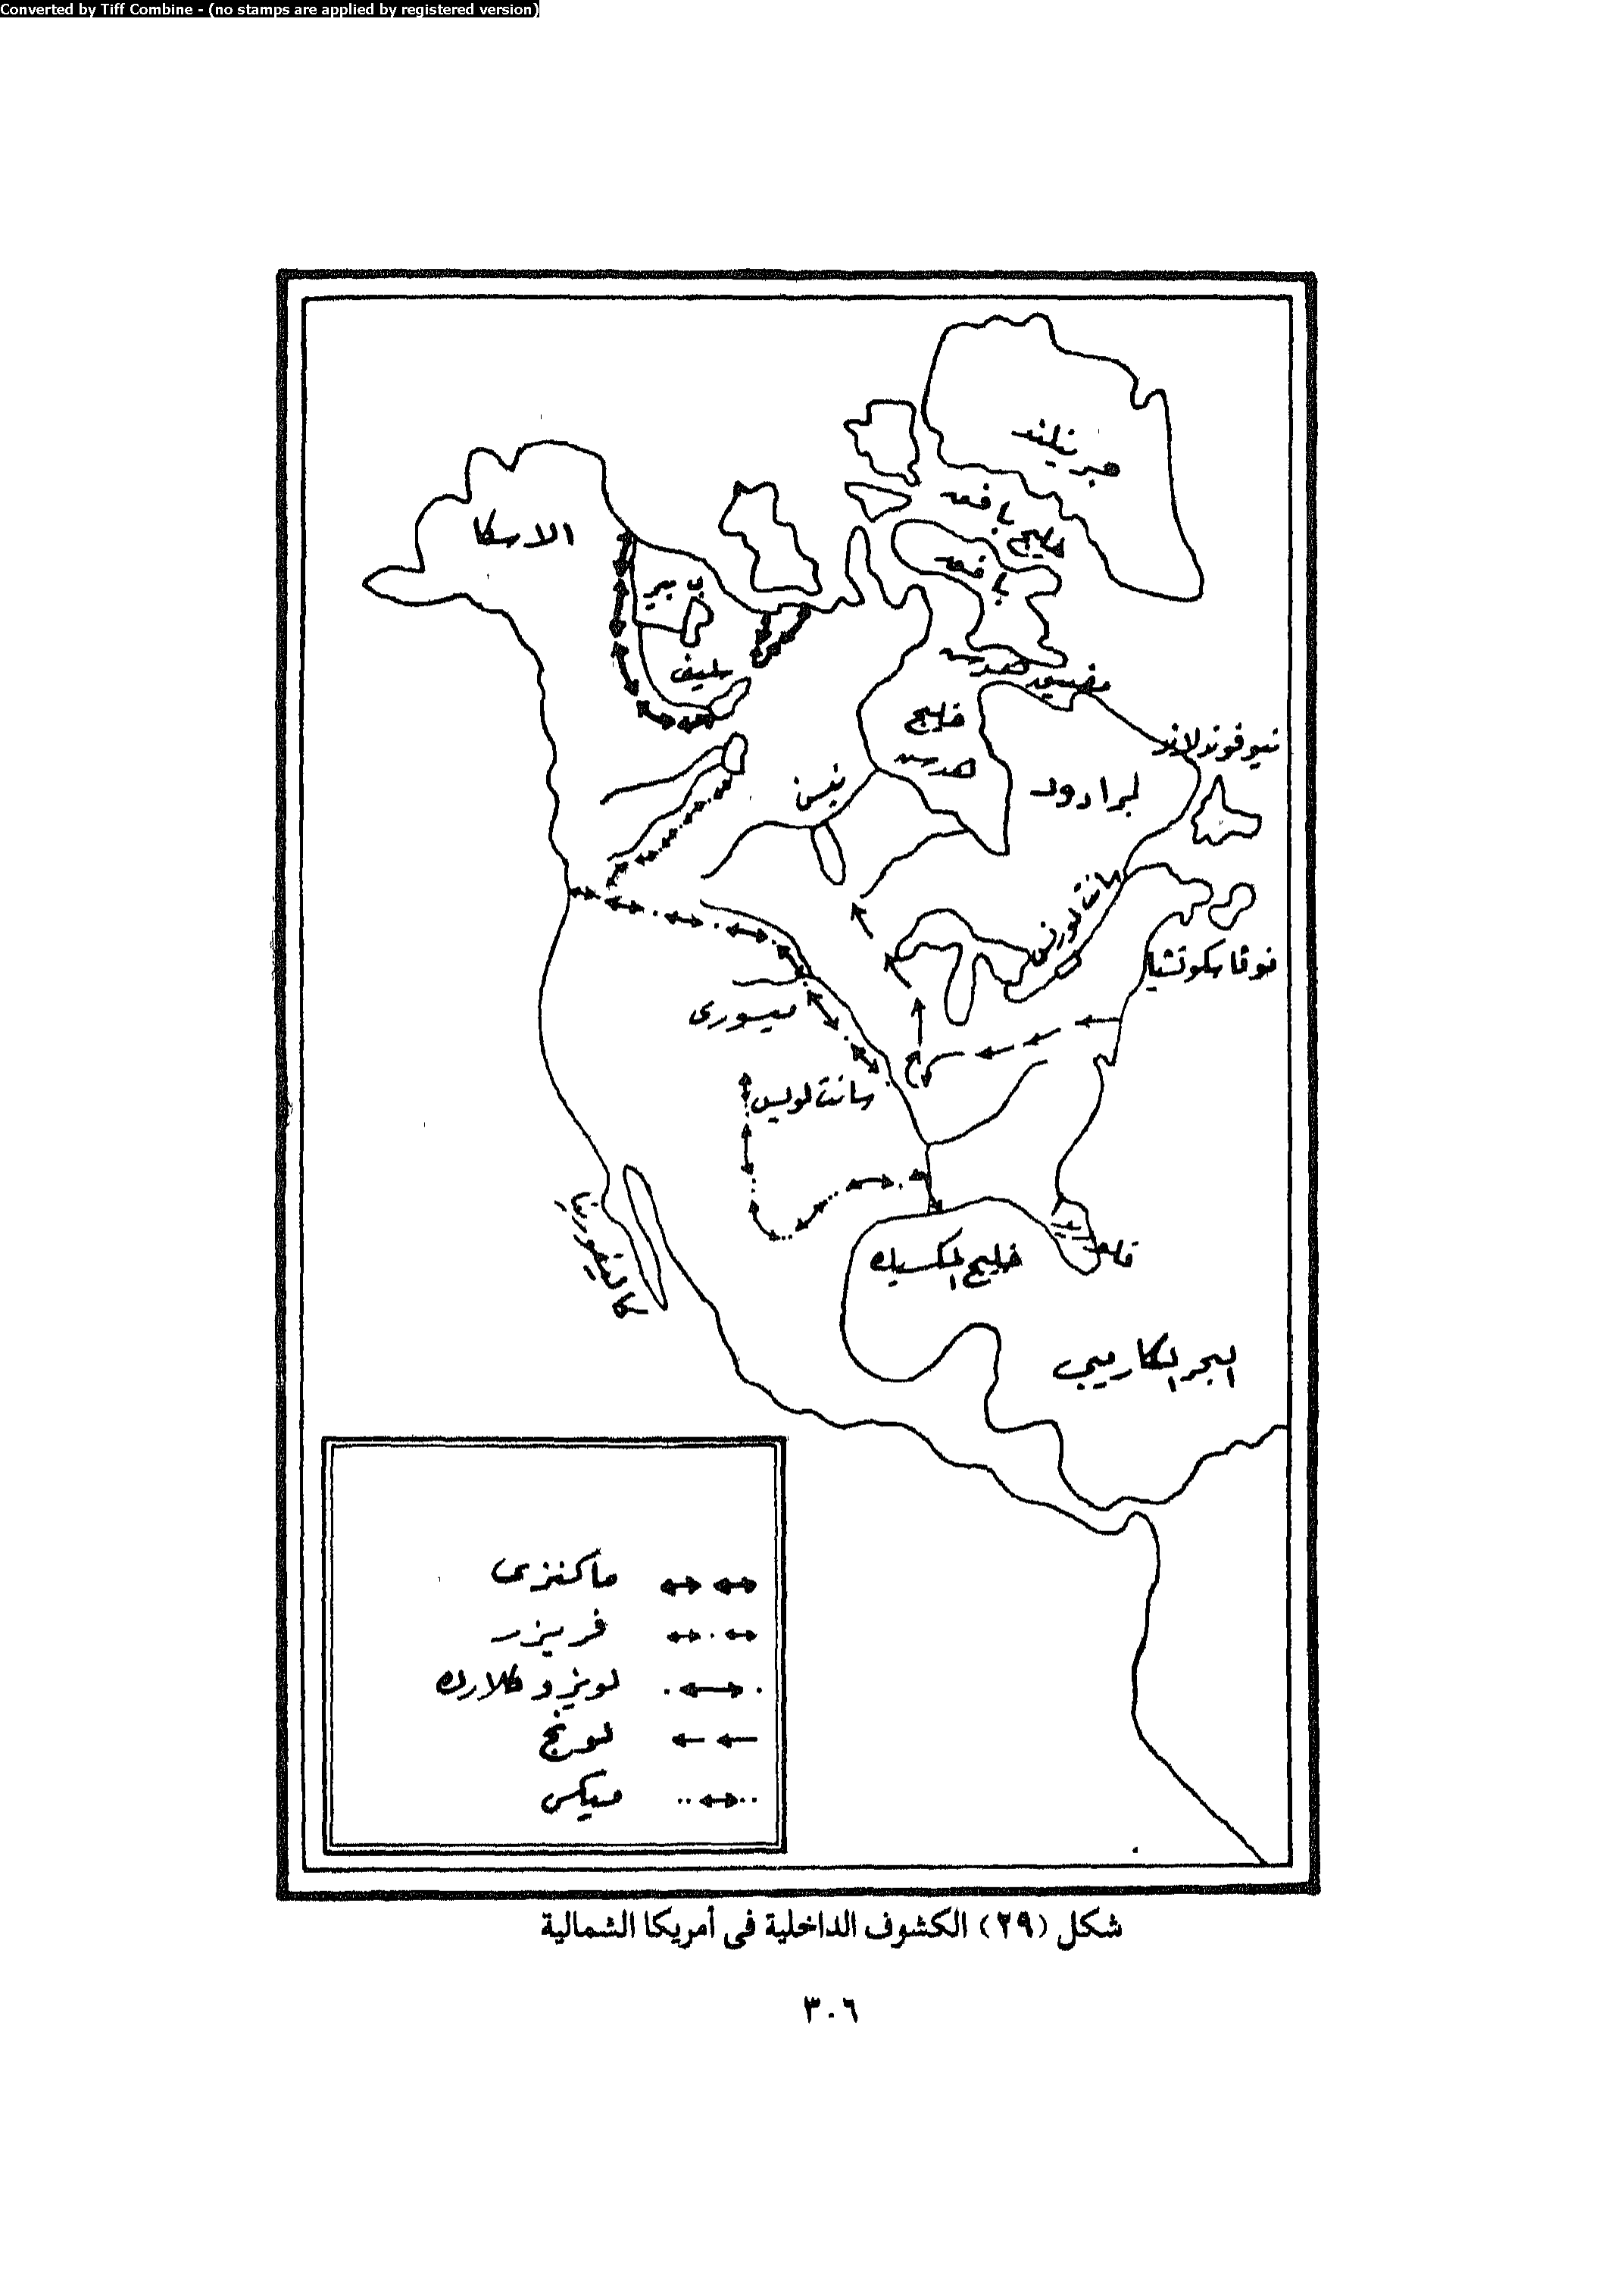 Converted by Tiff Combine - (no stamps are applied by registered version)
جرينلند
خليج بافن
بافن
الاسكا
بير
سليف
مضيق هدسن
خليج
هدسن
نيوفوندلاند
لبرادور
سانت لورنس
نوفا سكوتشيا
ميسورى
سانت لويس
كاليفورنيا
خليج المكسيك
البحر الكاريبى
ماكنزى
فريزر
لويز و كلارك
لونج
ميكس
شكل (٢٩) الكشوف الداخلية فى أمريكا الشمالية
٣٠٦